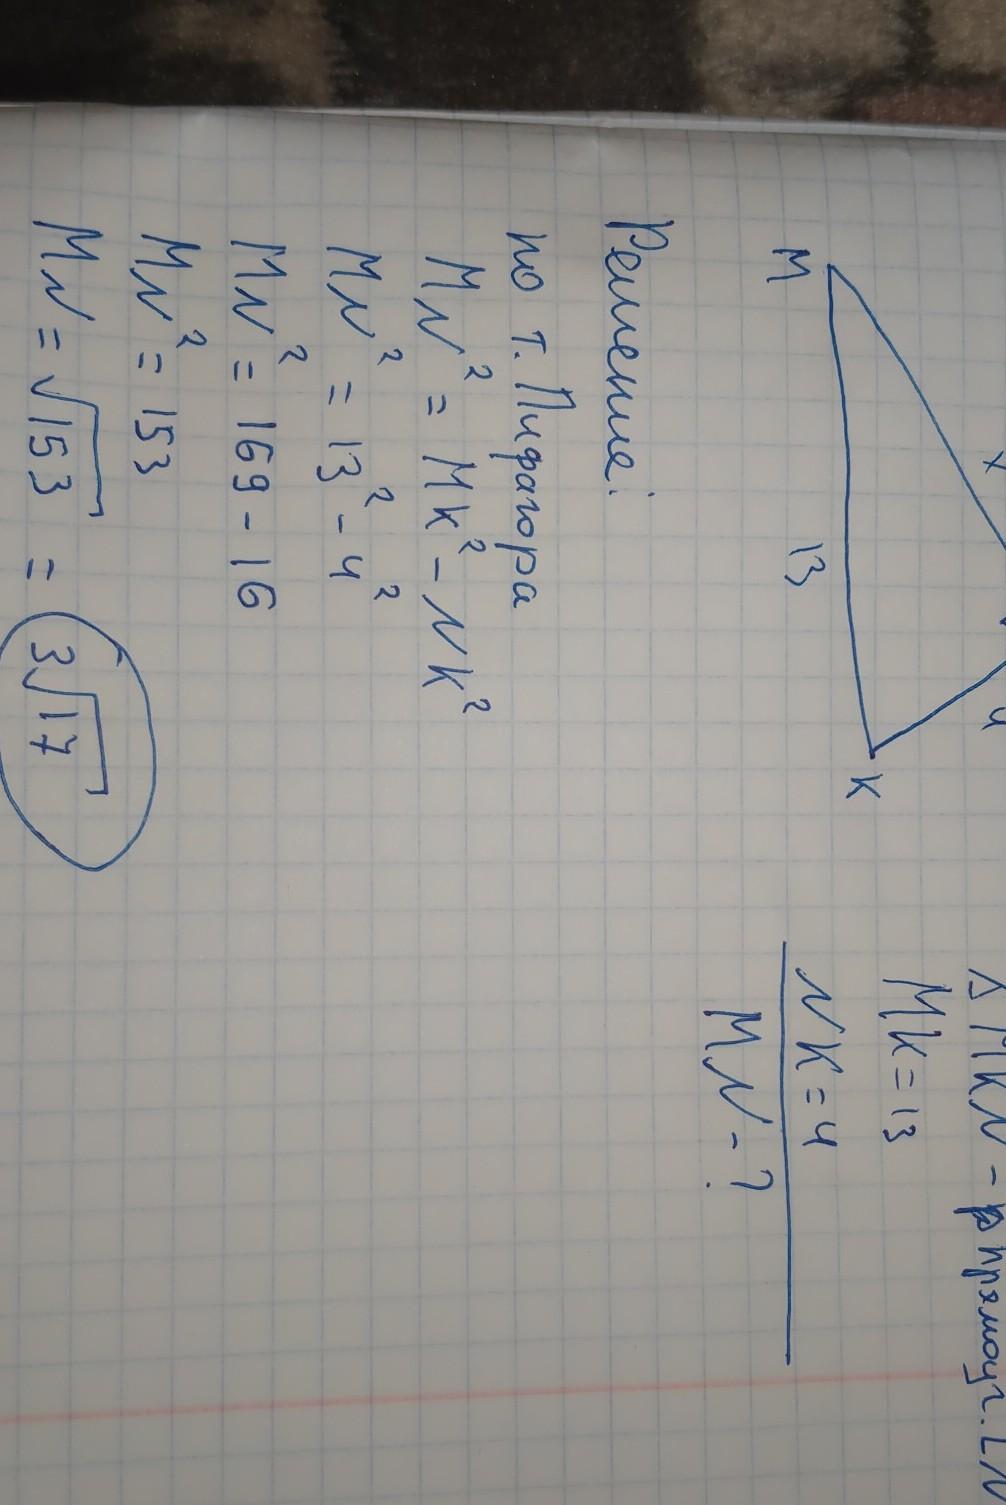 △ MKN - прямоуг. ∠N
MK = 13
NK = 4
MN - ?
x
4
M
13
K
Решение:
по т. Пифагора
MN² = MK² - NK²
MN² = 13² - 4²
MN² = 169 - 16
MN² = 153
MN = √153 = 3√17